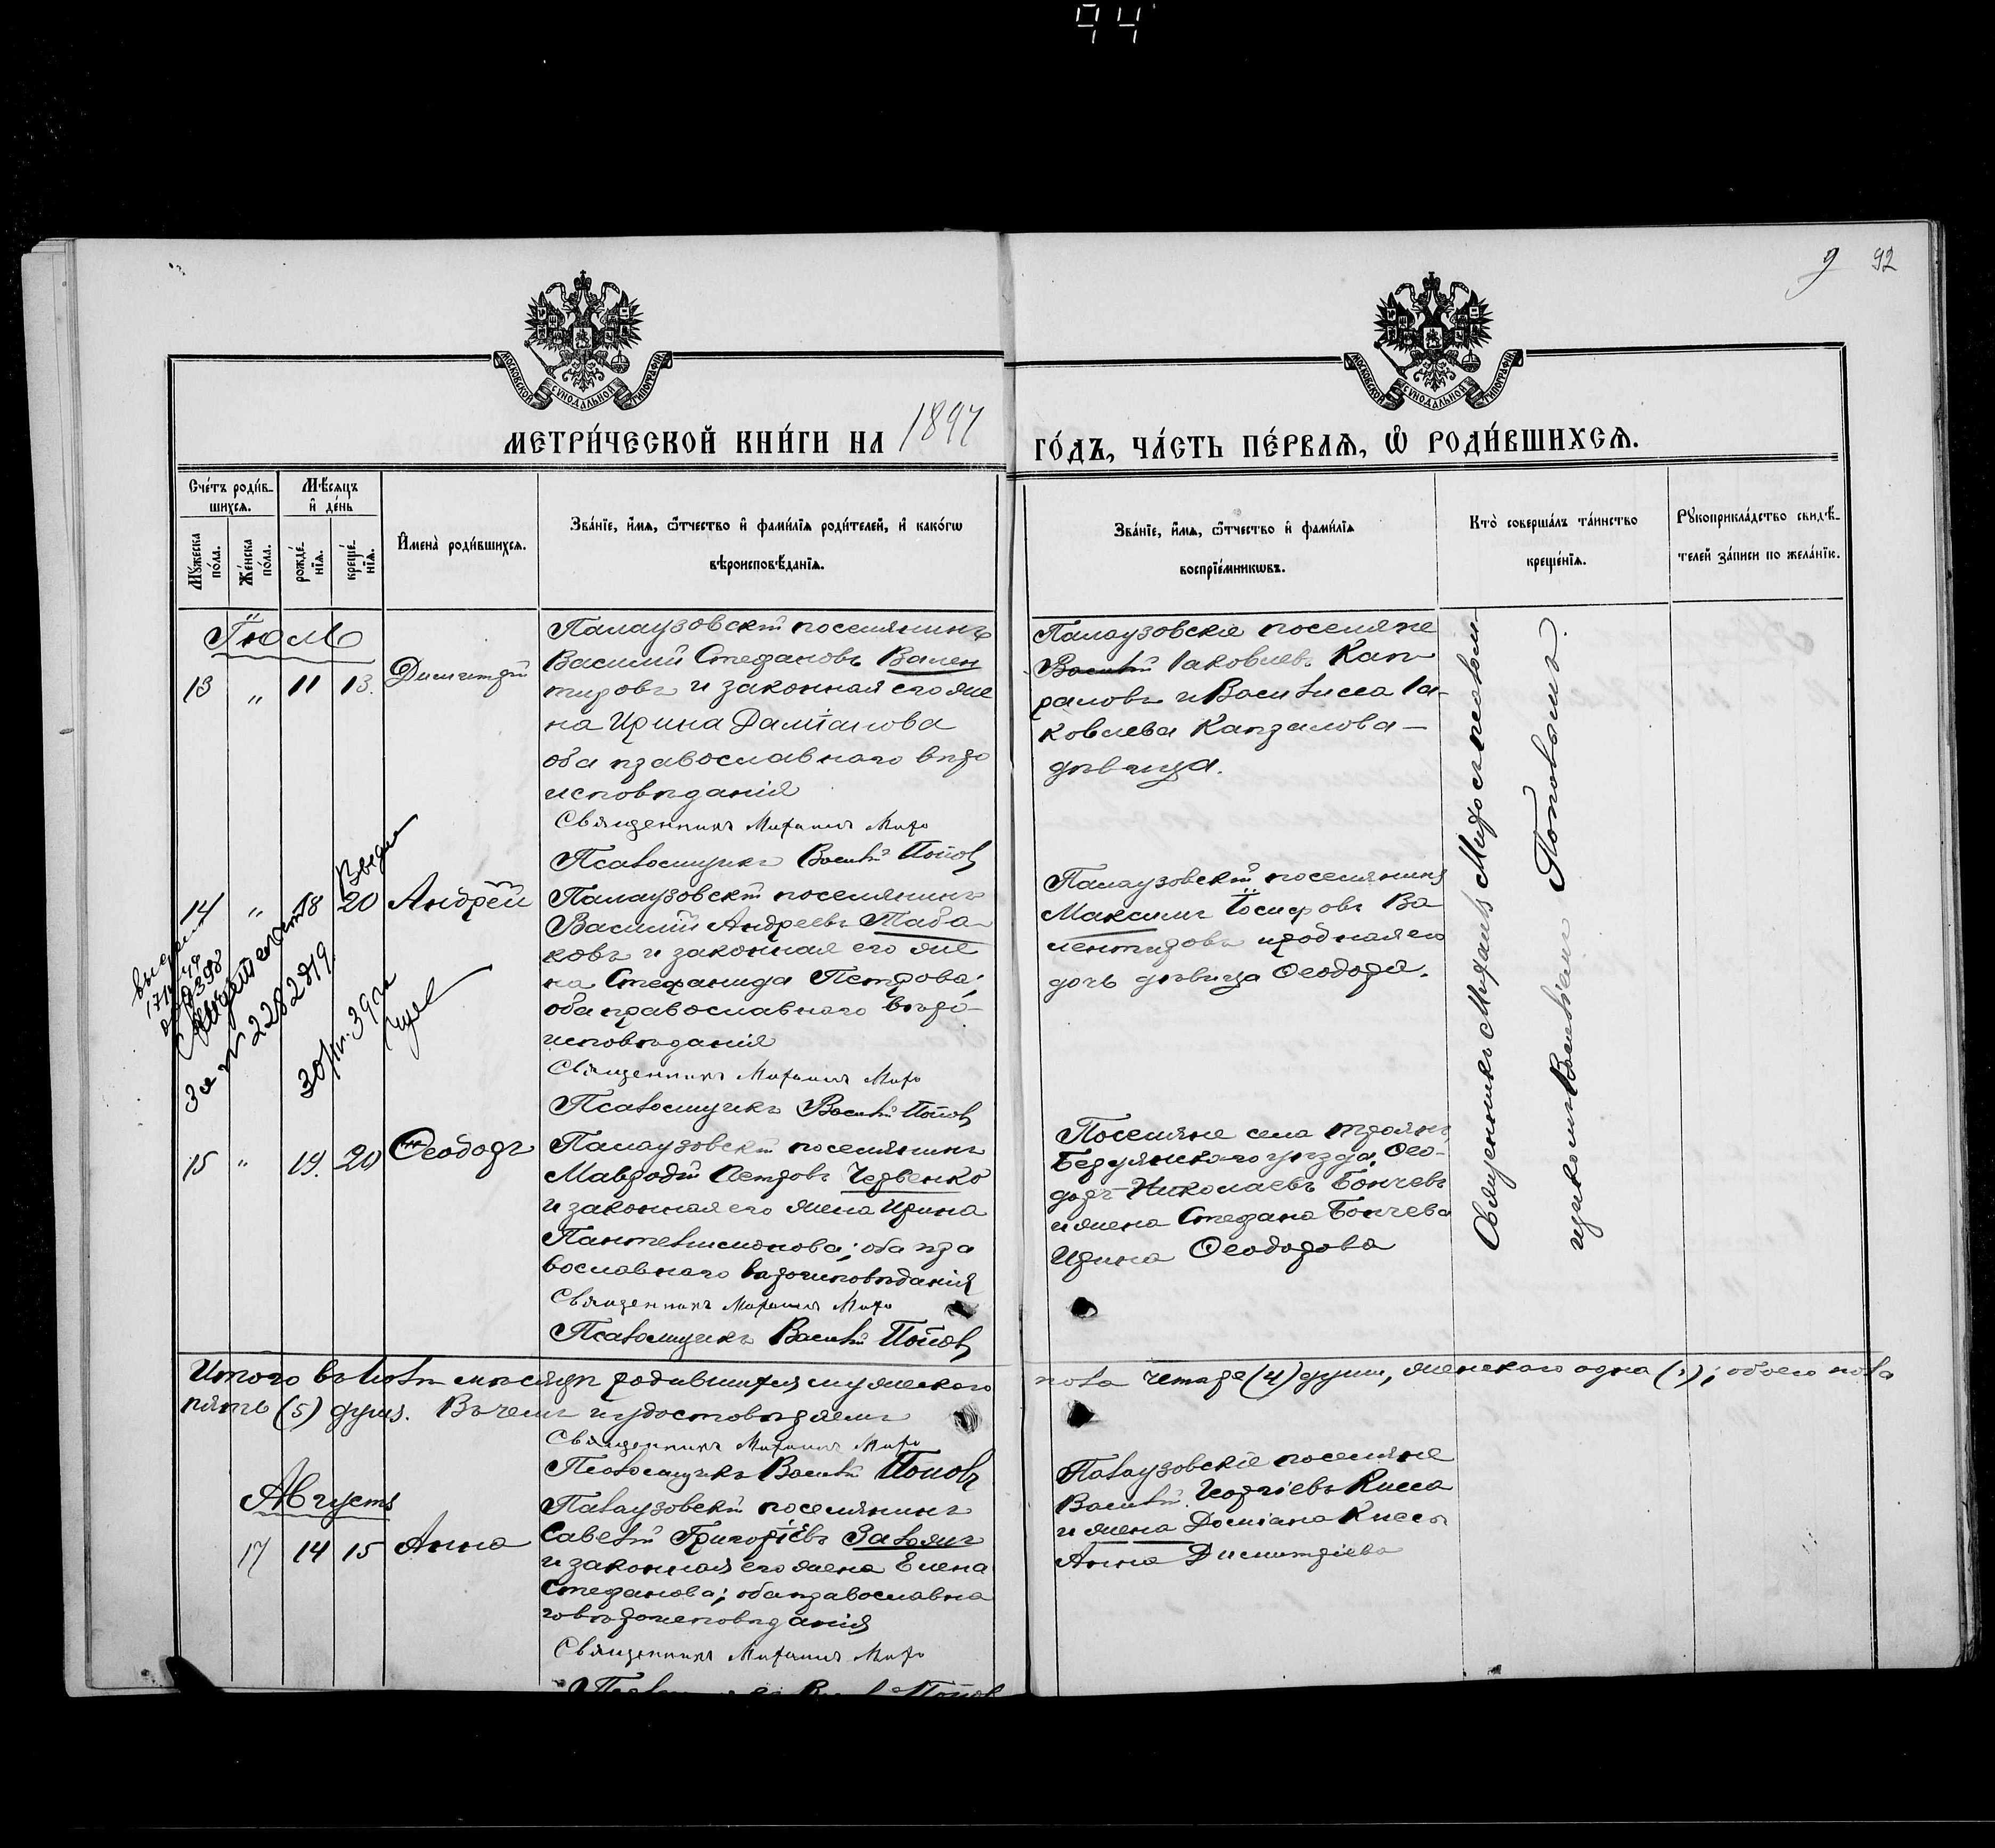 94
9 92
МОСКОВСКОЙ СѴНОДАЛЬНОЙ ТИПОГРАФІИ
МОСКОВСКОЙ СѴНОДАЛЬНОЙ ТИПОГРАФІИ
МЕТРИ́ЧЕСКОЙ КНИ́ГИ НА 1897 ГО́ДЪ, ЧА́СТЬ ПЕ́РВАѦ, Ѽ РОДИ́ВШИХСѦ.
Сче́тъ роди́в-
шихсѧ.
Мѣ́сѧцъ
и҆ де́нь
Мꙋ́жеска
по́ла.
Же́нска
по́ла.
рожде́-
нїѧ.
креще́-
нїѧ.
И҆мена̀ роди́вшихсѧ.
Зва́нїе, и҆́мѧ, ѻ҆́тчество и҆ фами́лїѧ роди́телей, и҆ како́гѡ
вѣроисповѣ́данїѧ.
Зва́нїе, и҆́мѧ, ѻ҆́тчество и҆ фами́лїѧ
воспрїе́мникѡвъ.
Кто̀ соверша́лъ та́инство
креще́нїѧ.
Рꙋкоприкла́дство свидѣ́-
телей за́писи по жела́нїю.
Іюль
13 " 11 13. Димитрій
Палаузовскій поселянинъ
Василий Стефановъ Вален
тировъ и законная его же
на Ирина Даміанова
оба православнаго вѣро
исповѣданія
Священникъ Михаилъ Миро
Псаломщикъ Василій Поповъ
Палаузовскіе поселяне
Василій Іаковлевъ Кап
раловъ и Василисса Іа-
ковлева Капралова —
дѣвица.
14 " 18 20 Андрей
Палаузовскій поселянинъ
Василий Андреевъ Таба-
ковъ и законная его же
на Стефанида Петрова;
оба православнаго вѣро-
исповѣданія
Священникъ Михаилъ Миро
Псаломщикъ Василій Поповъ
Палаузовскій поселянинъ
Максимъ Іосифовъ Ва
лентировъ и родная его
дочь дѣвица Феодора.
15 " 19. 20 Феодоръ
Палаузовскій поселянинъ
Мавродій Петровъ Червенко
и законная его жена Ирина
Пантелимонова; оба пра
вославнаго вѣроисповѣданія
Священникъ Михаилъ Миро
Псаломщикъ Василій Поповъ
Поселяне села Трояны
Бердянскаго уѣзда, Фео-
доръ Николаевъ Бончевъ
и жена Стефана Бончева
Ирина Феодорова
Священникъ Михаилъ Миро съ псалом
щикомъ Василіемъ Поповымъ.
Итого въ Іюлѣ мѣсяцѣ родившихся мужескаго пола четыре (4) души, женскаго одна (1); обоего пола
пять (5) душъ. Въ чемъ и удостовѣряемъ
Священникъ Михаилъ Миро
Псаломщикъ Василій Поповъ
Августъ
17 14 15 Анна
Палаузовскій поселянинъ
Савелій Григоріевъ Заволяг
и законная его жена Елена
Стефанова; оба православна
го вѣроисповѣданія
Священникъ Михаилъ Миро
Псаломщикъ Василій Поповъ
Палаузовскіе поселяне
Василій Георгіевъ Кисса
и жена Доміана Киссы
Анна Димитріева